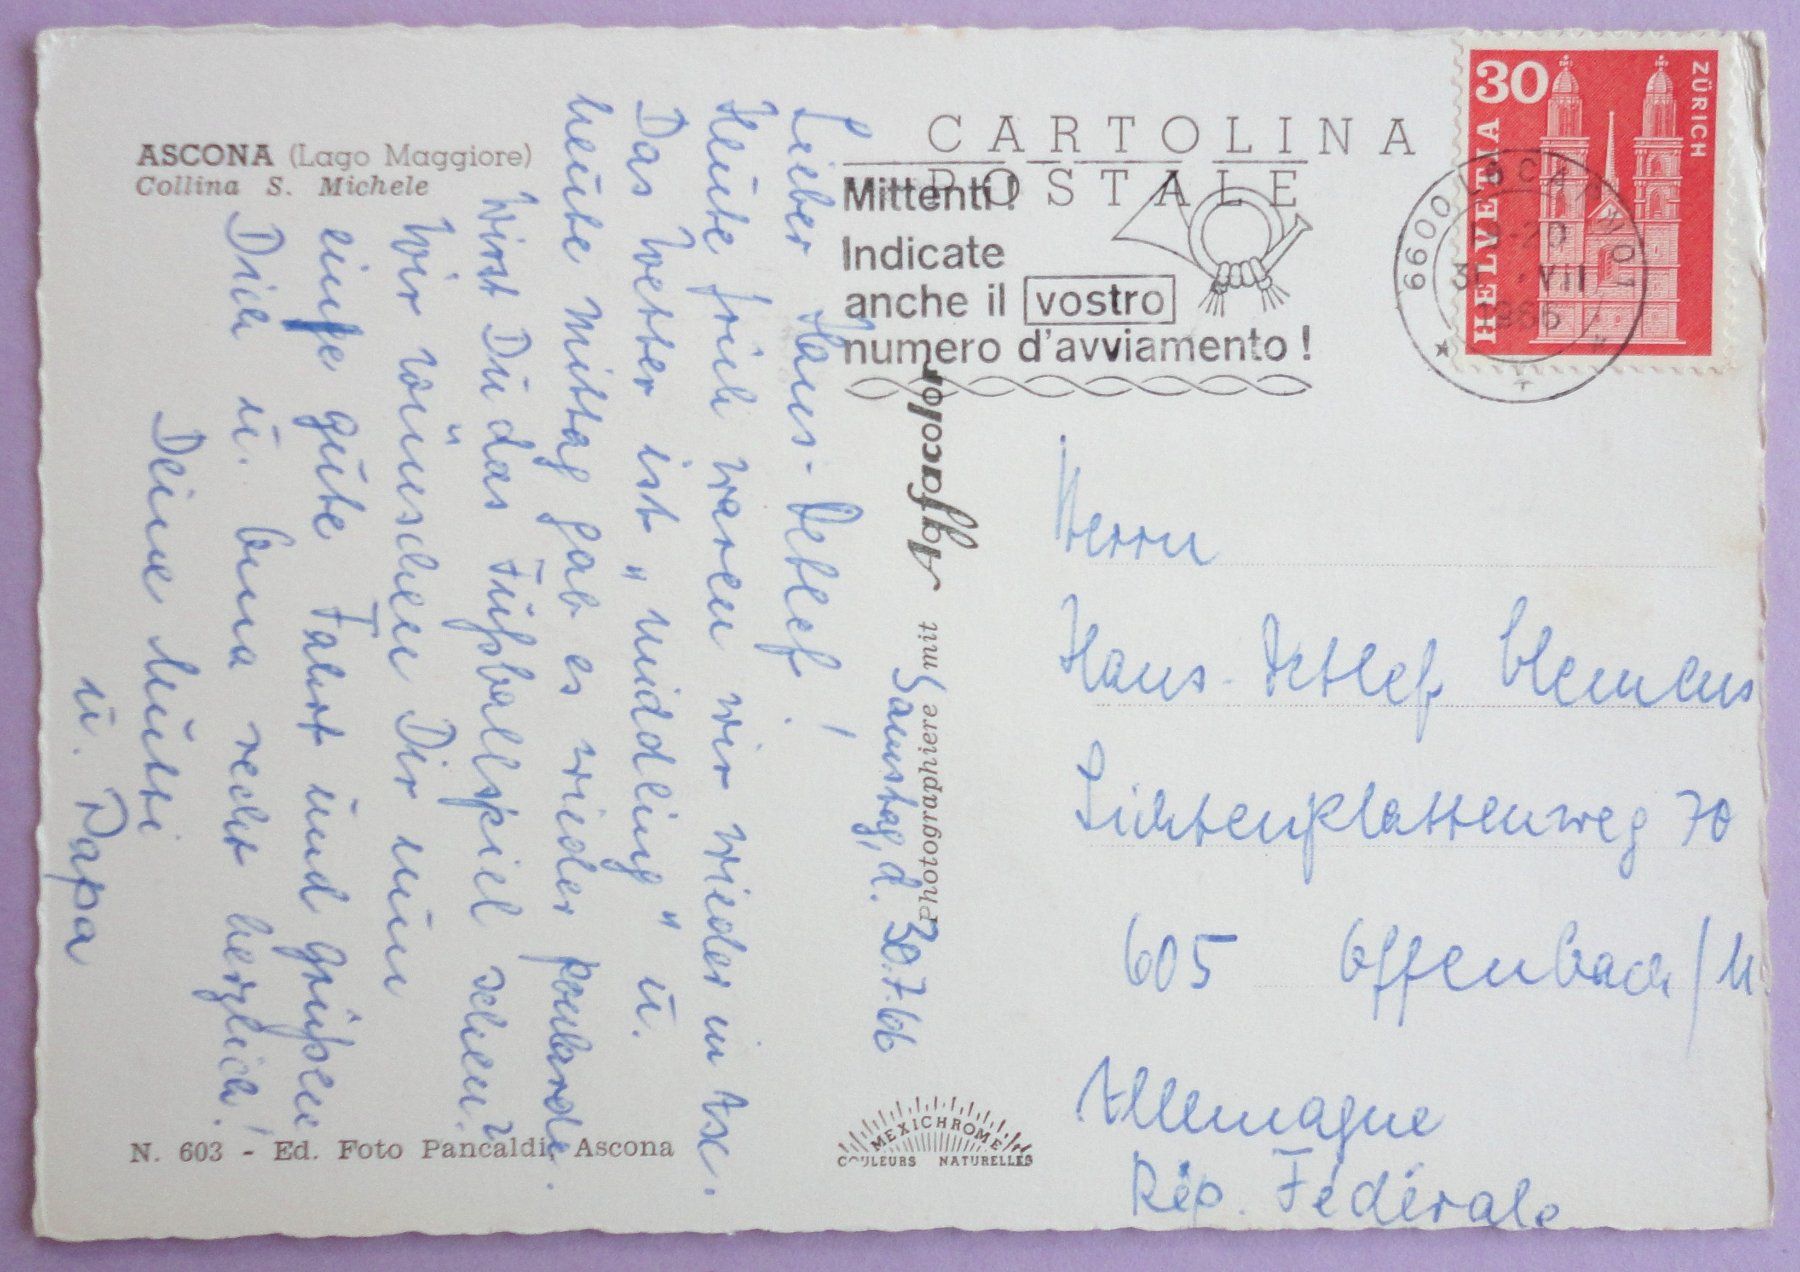 ASCONA (Lago Maggiore)
Collina S. Michele
CARTOLINA
POSTALE
Mittenti!
Indicate
anche il vostro
numero d'avviamento!
6600 LOCARNO 1
-20
31 VII
1966
30
HELVETIA
ZÜRICH
Photographiere mit Agfacolor
Samstag, d. 30.7.66
Lieber Hans-Detlef!
Heute früh waren wir wieder in
Das Wetter ist "middling" u.
heute mittag gab es wieder poularde.
Wirst Du das Fußballspiel sehen?
Wir wünschen Dir nun
eine gute Fahrt und grüßen
Dich u. Oma recht herzlich!
Deine Mutti
u. Papa
Herrn
Hans-Detlef
70
605 Offenbach/M.
Allemagne
Rép. Fédérale
N. 603 - Ed. Foto Pancaldi, Ascona
MEXICHROME
COULEURS NATURELLES